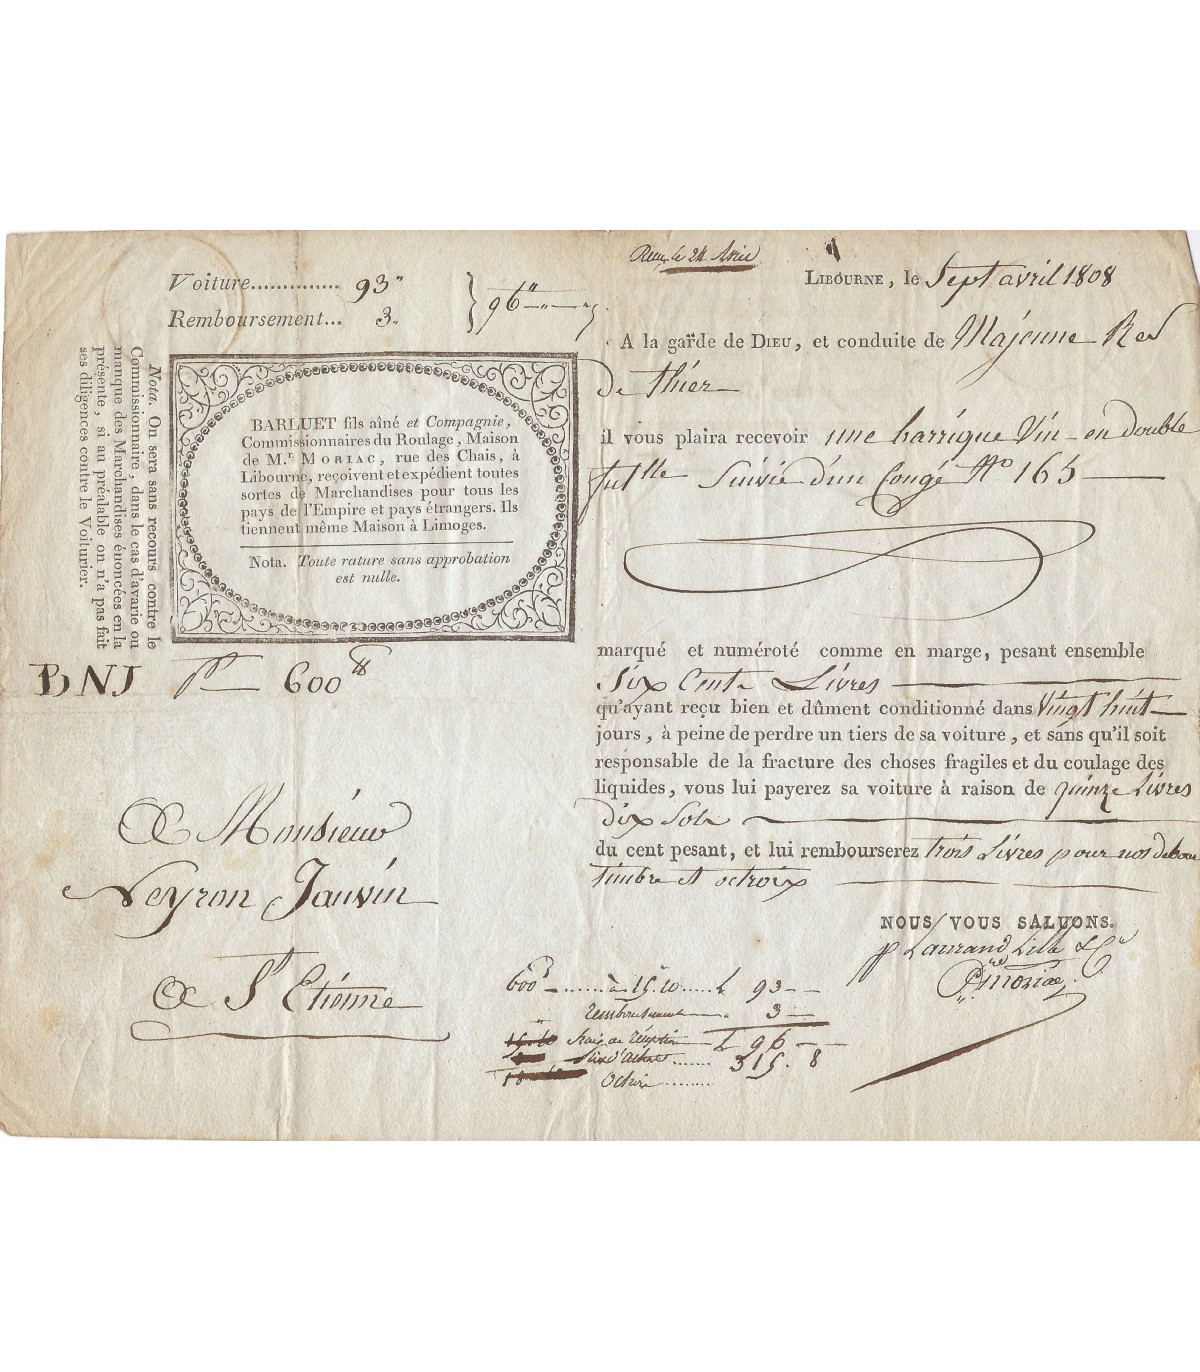 Voiture.............. 93"
Remboursement... 3"
96"
le 24
LIBOURNE, le Sept avril 1808
A la garde de DIEU, et conduite de Majeune
de thier
il vous plaira recevoir une barrique Vin en double
futlle Suivie d'un Congé No 165
Nota. On sera sans recours contre le
Commissionnaire, dans le cas d'avarie ou
manque des Marchandises énoncées en la
présente, si au préalable on n'a pas fait
ses diligences contre le Voiturier.
BARLUET fils aîné et Compagnie,
Commissionnaires du Roulage, Maison
de M.r MORIAC, rue des Chais, à
Libourne, reçoivent et expédient toutes
sortes de Marchandises pour tous les
pays de l'Empire et pays étrangers. Ils
tiennent même Maison à Limoges.
Nota. Toute rature sans approbation
est nulle.
BNJ P 600 lb
marqué et numéroté comme en marge, pesant ensemble
Six Cents Livres
qu'ayant reçu bien et dûment conditionné dans Vingt huit
jours, à peine de perdre un tiers de sa voiture, et sans qu'il soit
responsable de la fracture des choses fragiles et du coulage des
liquides, vous lui payerez sa voiture à raison de quinze Livres
dix Sols
du cent pesant, et lui rembourserez trois Livres pour nos debours
timbre et octroix
NOUS VOUS SALUONS.
A Monsieur
Neyron Jauvin
A St Etienne
p Laurand
Moriac
600 ...... à 15.10 ..... L 93
remboursement 3
15.10 frais de réception L 96
315.8
Octroi ..........